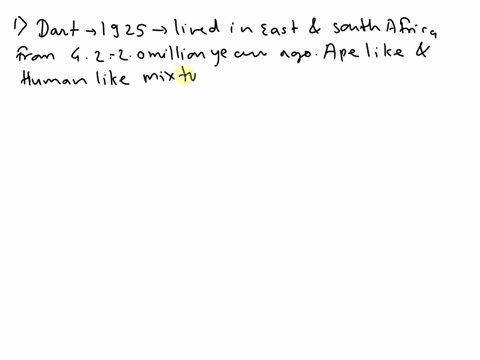 1) Dart → 1925 → lived in East & South Africa
from 4.2-2.0 million year ago. Ape like &
Human like mixtu